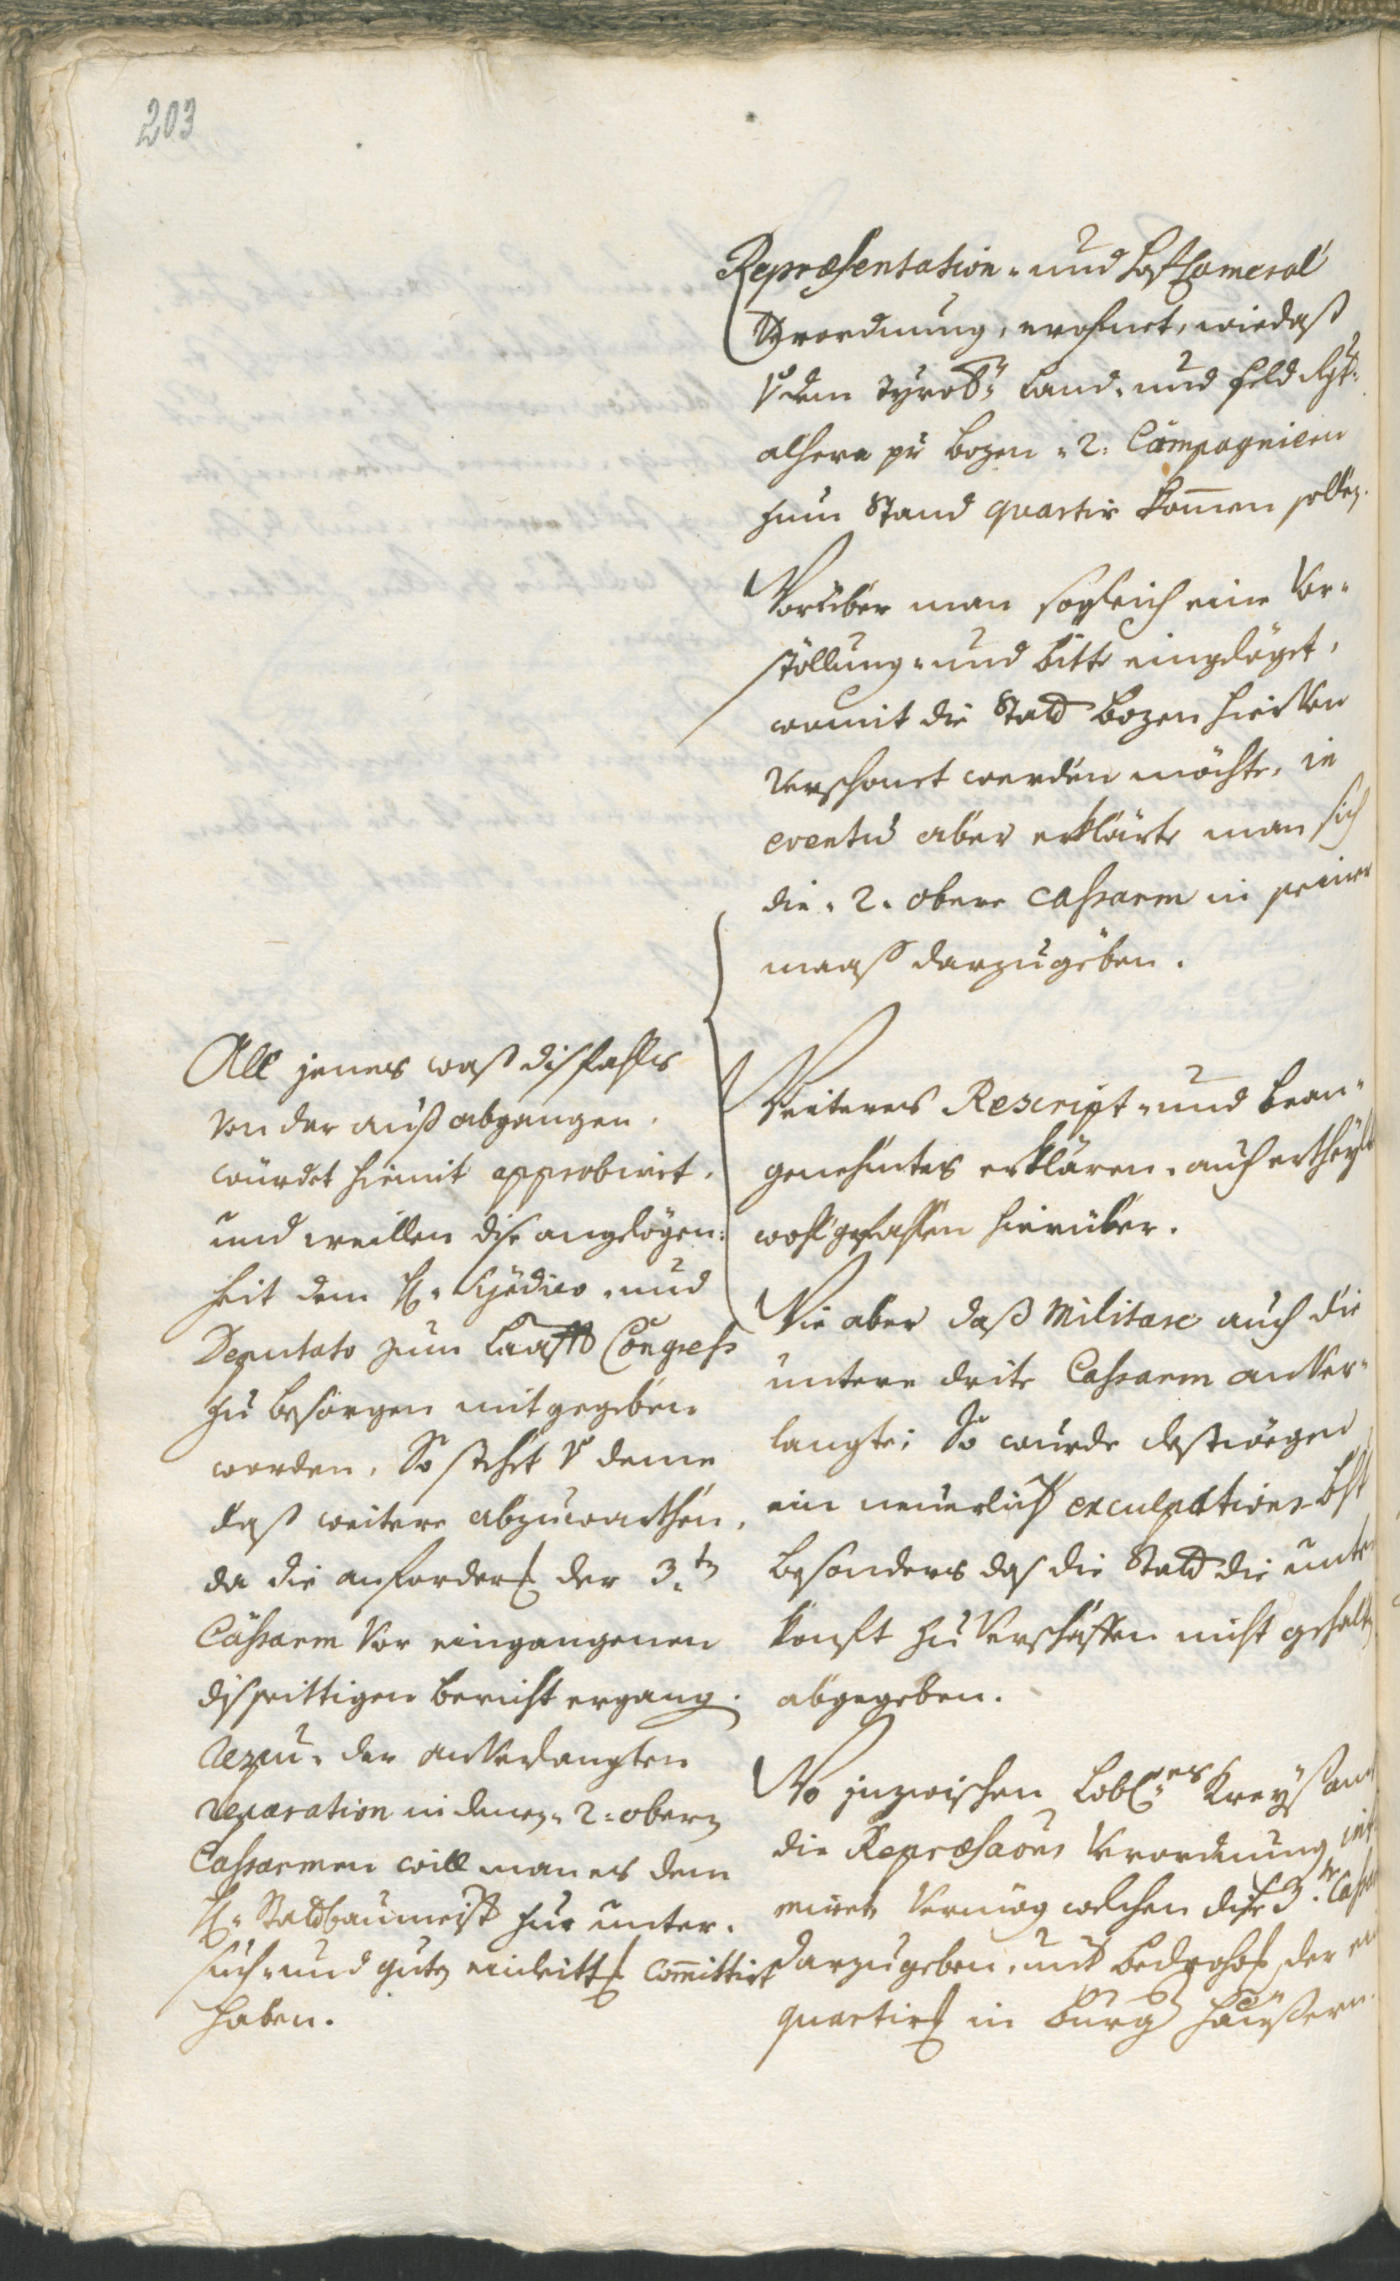 203
Repræsentation- und HofCameral
Verordnung, erofnet, wie daß
von dem Tyrol: Land- und Feld Rgt:
alhero pr Bozen 2: Compagnien
zum Stand quartir kommen sollen.
Worüber man sogleich eine Vor-
stöllung- und bitte eingelöget,
womit die Statt Bozen hieruon
verschonet werden möchte, in
eventu aber erklärte man sich
die 2. obere Cassarm in seiner
maass darzugeben.
Weiteres Rescript- und bean-
genehmtes erklären, auch ertheylt
wohlgefahlen hierüber.
Wie aber daß Militare auch die
untere drite Cassarm anver-
langte; So wurde destwögen
ein neuerlich exculpations bst
besonders das die Statt die unter
konft zu verschaffen nicht gehalt
abgegeben.
Wo inzwischen Lobl:es Kreyß amt
die Repræsaons Verordnung inti
miret vermög welchen dise 3.te Cassarm
darzugeben, mit bedrohe der ein
quartier in Burg: Häußern.
All jenes waß disfahls
von der auß abgangen.
würdet hiemit approbirt.
und weillen dise angelögen:
heit dem H: Syndico und
Deputato zum Laastl Congress
zu besorgen mitgegeben
worden. So stehet von deme
daß weitere abzuwarthen,
da die anforder der 3.tn
Cassarm vor eingangenen
disseittigen bericht ergang.
der anverlangten
reparation in denen 2: obern
Cassarmen will man es dem
H: Stattbaumeist zur unter-
such- und guten einleitt Committirt
haben.